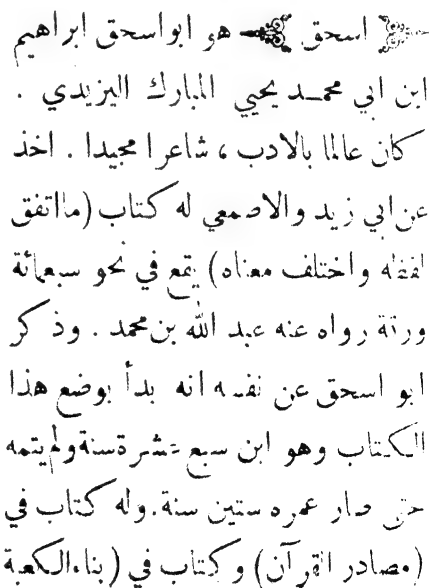 اسحق هو ابواسحق ابراهيم
ابن ابي محمد يحيي المبارك اليزيدي .
كان عالما بالادب ، شاعرا مجيدا . اخذ
عن ابي زيد والاصمعي له كتاب (مااتفق
لفظه واختلف معناه) يقع في نحو سبعمائة
ورقة رواه عنه عبد الله بن محمد . وذكر
ابو اسحق عن نفسه انه بدأ بوضع هذا
الكتاب وهو ابن سبع عشرة سنة ولم يتمه
حتى صار عمره ستين سنة . وله كتاب في
(مصادر القرآن) وكتاب في (بناء الكعبة